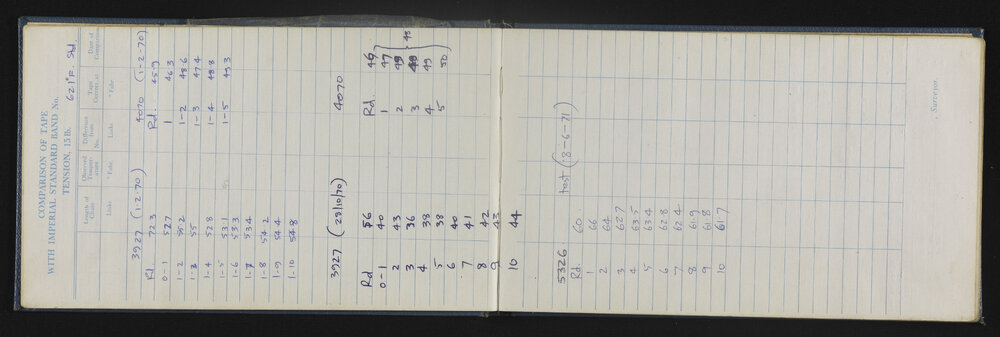 COMPARISON OF TAPE
WITH IMPERIAL STANDARD BAND No.
TENSION, 15 lb. 62.1°F. Std.
Length of Chain Observed Temperature Difference from No. Links Tape Correct at Date of Comparison
Links ° Fahr. Links ° Fahr.
3927 (1.2.70) 4070 (1-2-70)
Rd. 72.3 Rd. 45.9
0-1 52.7 1 46.3
1-2 55.2 1-2 48.6
1-3 55 1-3 47.4
1-4 52.8 1-4 48.8
1-5 53.1 1-5 49.3
1-6 53.3
1-7 53.4
1-8 54.2
1-9 54.4
1-10 54.8
3927 (23/10/70) 4070
Rd 56 Rd. 46
0-1 40 1 47
2 43 2 49
3 36 3
4 38 4 49
5 38 5 50
48
6 40
7 41
8 42
9 43
10 44
5326 test (18-6-71)
Rd. 60
1 66
2 64
3 62.7
4 63.5
5 63.4
6 62.8
7 62.4
8 61.9
9 61.8
10 61.7
Surveyor.